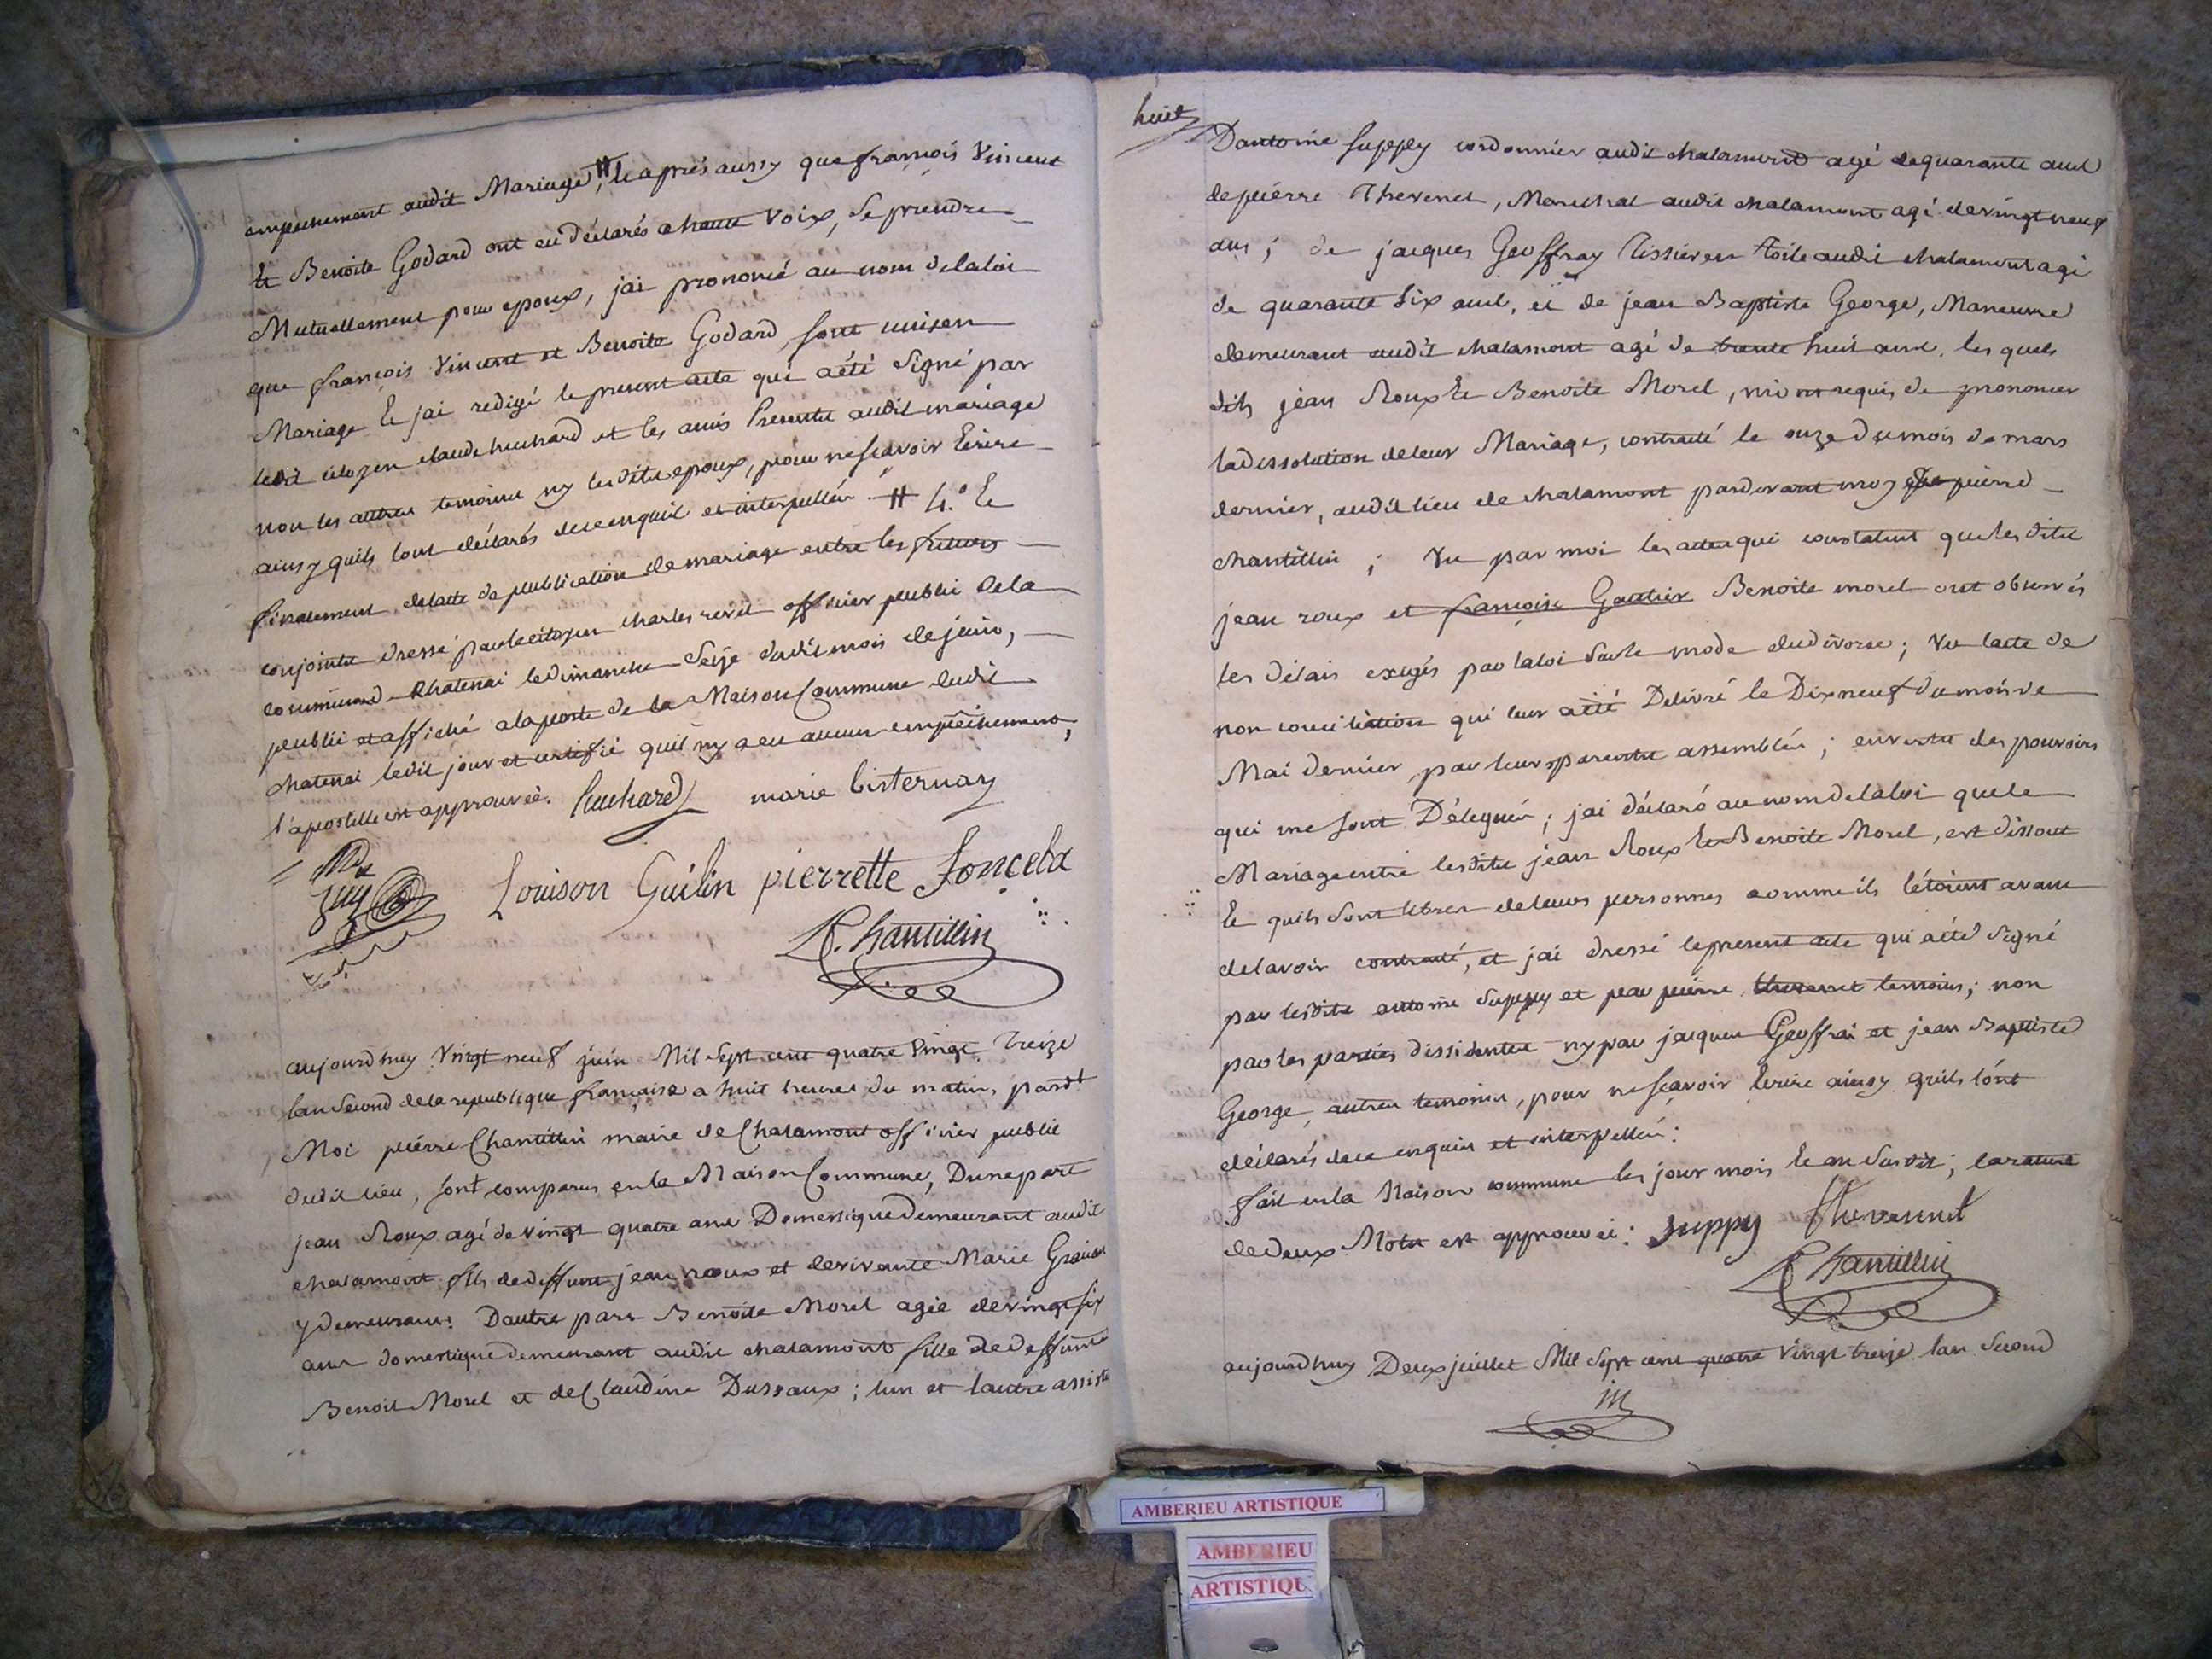 empechement audit Mariage, # & après aussy que françois Vincent
& Benoite Godard ont eu déclarés a haute Voix, se prendre
Mutuellement pour epoux, jai prononcé au nom delaloi
que françois Vincent et Benoite Godard, sont unisen
Mariage & jai redigé le present acte qui aété Signé par
ledit citoyen claude huchard et les amis Presents audit mariage
non les autres temoins ny lesdits epoux, pour nescavoir Ecrire
ainsy quils lont déclarés dece enquis et interpellés # 4.° &
finalement delacte de publication de mariage entre les futurs
conjoints dressé par le citoyen charles revel officier public dela
commune de Chatenai le dimanche Seize dudit mois de juin,
publié et affiché alaporte de la Maison Commune dudit
chatenai ledit jour et certifié quil ny a eu aucun empêchement,
l'apostille est approuvée. huchard marie Cisternay
Louison Guilin pierrette Fonçelx
P. Chantillin
aujourdhuy Vingt neuf juin Mil Sept cent quatre Vingt Treize
lan Second dela republique française a huit heures du matin, pardt
Moi pierre Chantillin maire de Chalamont officier public
dudit lieu, sont comparus en la Maison Commune, Dunepart
jean Roux agé de vingt quatre ans Domestique demeurant audit
chalamont fils dedeffunt jean roux et devivante Marie
y demeurant: Dautre part Benoite Morel agée devingt six
ans domestique demeurant audit chalamont fille dedeffunt
Benoit Morel et de Claudine Dussaux; lun et lautre assistés
huit
Dantoine Suppy cordonnier audit chalamont agé dequarante ans
depierre Thevenet, Marechal audit chalamont agé devingt neuf
ans; de jacques Geoffray Tissier en toile audit chalamont agé
de quarante six ans, et de jean Baptiste George, Maneuvre
demeurant audit chalamont agé de trente huit ans. les quels
dits jean Roux & Benoite Morel, mont requis de prononcer
ladissolution deleur Mariage, contracté le onze dumois de mars
dernier, audit lieu de chalamont pardevant moy dit pierre
chantillin; Vu par moi les actes qui constatent que lesdits
jean roux et françoise Gautier Benoite morel ont observés
les délais exigés par laloi surle mode dudivorce; Vu lacte de
non conciliation qui leur aété Delivré le Dixneuf du mois de
Mai dernier, par leurs parents assemblés; envertu des pouvoirs
qui me sont Délegués; jai déclaré au nom delaloi que le
Mariage entre lesdits jean Roux & Benoite Morel, est dissout
& quils sont libres deleurs personnes comme ils létoient avant
delavoir contracté, et jai dressé lepresent acte qui aété Signé
par lesdits antoine Suppy et par pierre thevenet temoins; non
par les parties dissidentes ny par jacques Geoffrai et jean Baptiste
George, autres temoins, pour nescavoir Ecrire ainsy quils lont
déclarés dece enquis et interpellés:
fait enla Maison commune les jour mois & an susdit; larature
de deux Mots est approuvée: Suppy Thevennet
P. Chantillin
aujourdhuy Deux juillet Mil Sept cent quatre Vingt treize lan Second
AMBERIEU ARTISTIQUE
AMBERIEU
ARTISTIQU